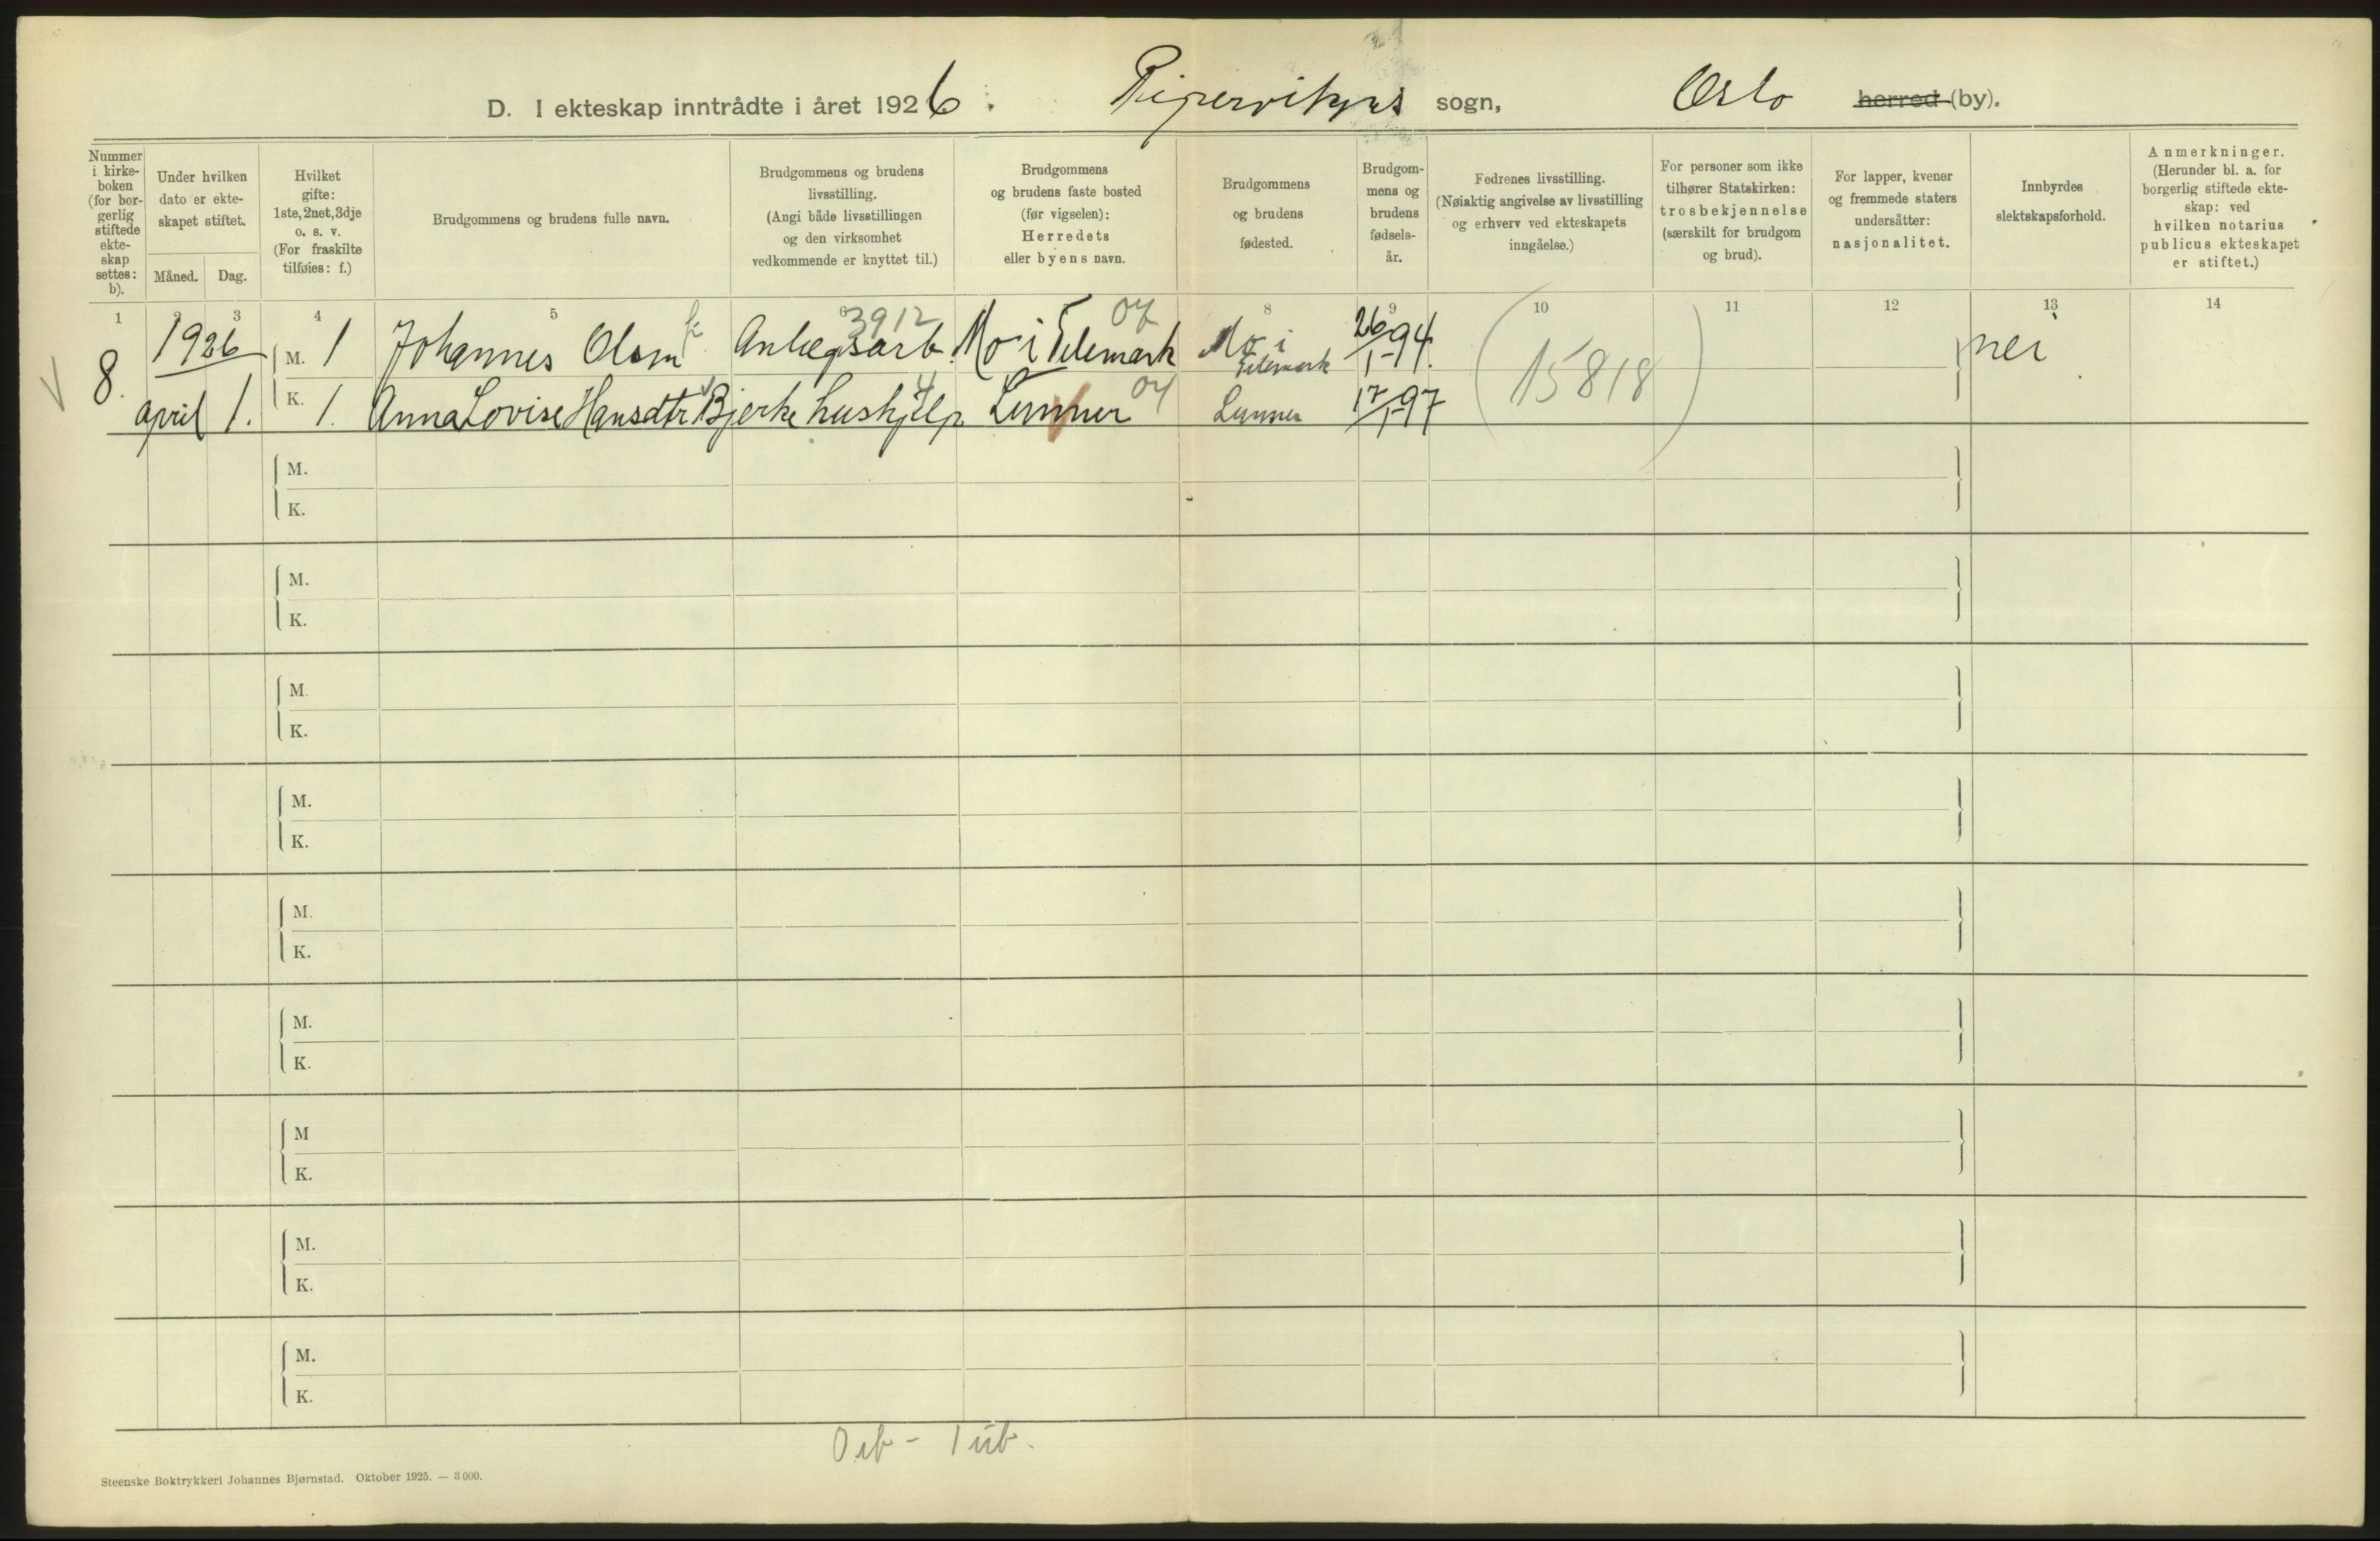 D. I ekteskap inntrådte i året 1926. Pipervikens sogn, Oslo herred (by).
Nummer i kirkeboken (for borgerlig stiftede ekteskap settes: b).
Under hvilken dato er ekteskapet stiftet.
Måned. Dag.
Hvilket gifte: 1ste, 2net, 3dje o. s. v. (For fraskilte tilføies: f.)
Brudgommens og brudens fulle navn.
Brudgommens og brudens livsstilling. (Angi både livsstillingen og den virksomhet vedkommende er knyttet til.)
Brudgommens og brudens faste bosted (før vigselen): Herredets eller byens navn.
Brudgommens og brudens fødested.
Brudgommens og brudens fødselsår.
Fedrenes livsstilling. (Nøiaktig angivelse av livsstilling og erhverv ved ekteskapets inngåelse.)
For personer som ikke tilhører Statskirken: trosbekjennelse (særskilt for brudgom og brud).
For lapper, kvener og fremmede staters undersåtter: nasjonalitet.
Innbyrdes slektskapsforhold.
Anmerkninger. (Herunder bl. a. for borgerlig stiftede ekteskap: ved hvilken notarius publicus ekteskapet er stiftet.)
1 2 3 4 5 6 8 9 10 11 12 13 14
3912 07
8. 1926 M. 1 Johannes Olsen Anlegsarb. Mo i Telemark Mo i Telemark 26/1-94. (15818) nei
april 1. K. 1. Anna Lovise Hansdtr Bjerke hushjelp Lunner 04 Lunner 17/1-97
M.
K.
M.
K.
M.
K.
M.
K.
M.
K.
M.
K.
M
K.
M.
K.
M.
K.
Steenske Boktrykkeri Johannes Bjørnstad. Oktober 1925. — 3 000.